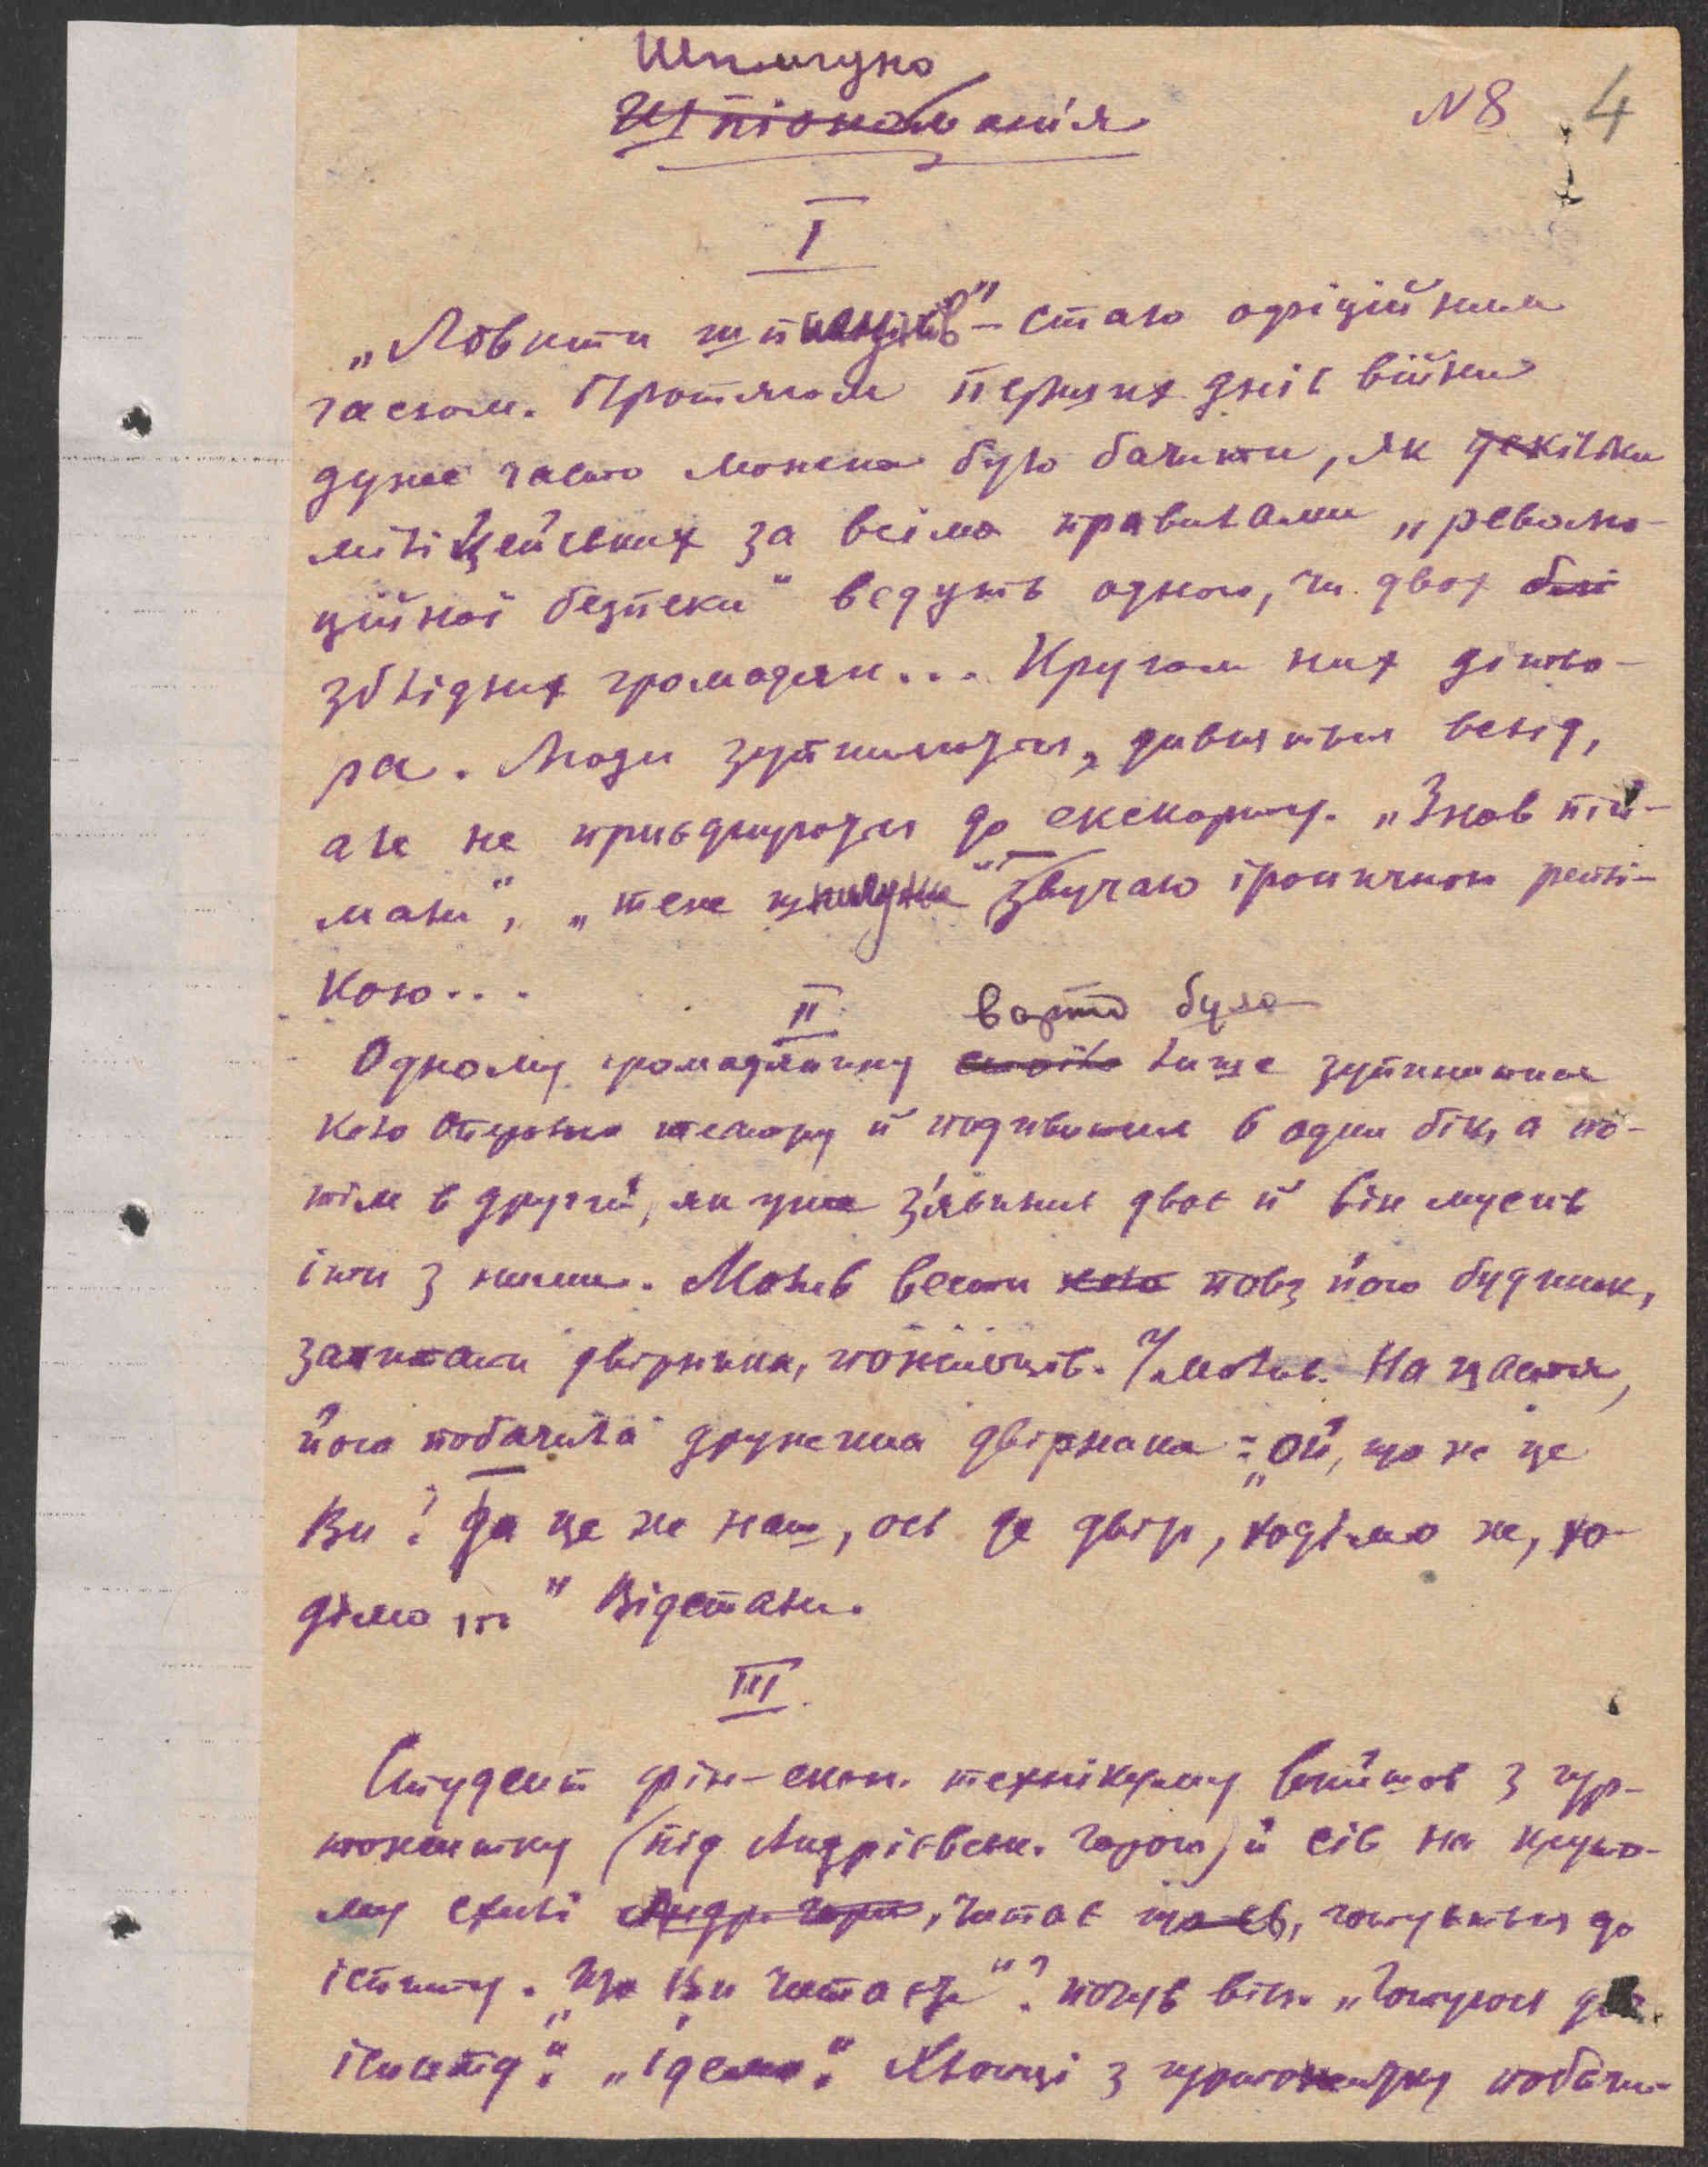 Шпигуно
Шпіономанія
N 8 4
I
„Ловити шпигунів" – стало офіційним
гаслом. Протягом перших днів війни
дуже часто можна було бачити, як декілька
міліцейських за всіма правилами „револю-
ційної безпеки" ведуть одного, чи двох
зблідних громадян... Кругом них дітво-
ра. Люди зупиняються, дивляться вслід,
але не приєднуються до екскорту. „Знов пій-
мали", „теж шпигуни" звучало іронічною реплі-
кою...
II варто було
Одному громадянину стоїло лише зупинитися
коло оперного театру й подивитися в один бік, а по-
тім в другий, як уже з'явились двоє й він мусив
іти з ними. Молив вести коло повз його будинок,
запитати двірника, пожильців. Умолив. На щастя,
його побачила дружина двірника: „Ой, що же це
Ви! Да це же наш, ось де двір, ходімо же, хо-
дімо..." Відстали.
III
Студент фін-екон. технікуму вийшов з гур-
тожитку (під Андрієвськ. горою) й сів на круто-
му схилі Андр. гори, читає щось, готується до
іспиту. „Що Ви читаєте"? почув він. „Готуюсь до
іспитів". „Ідемо". Хлопці з гуртожитку побачи-